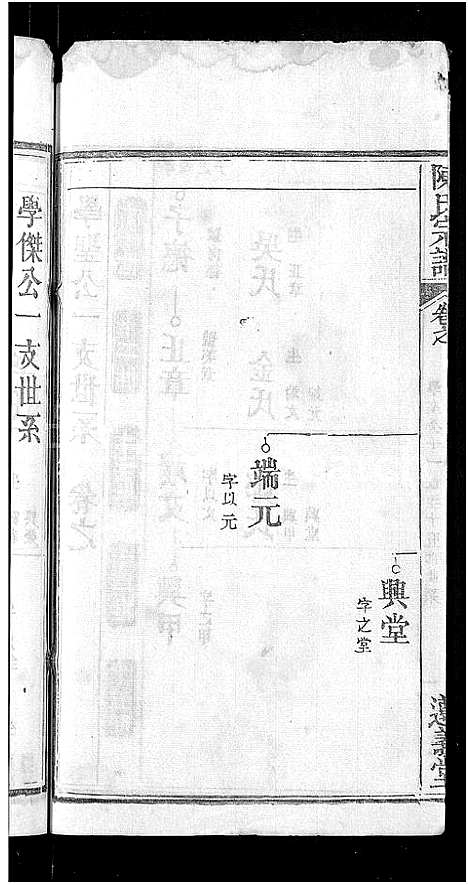 陳氏宗譜
卷之
興堂
字之堂
端元
字以元
學傑公一支世系